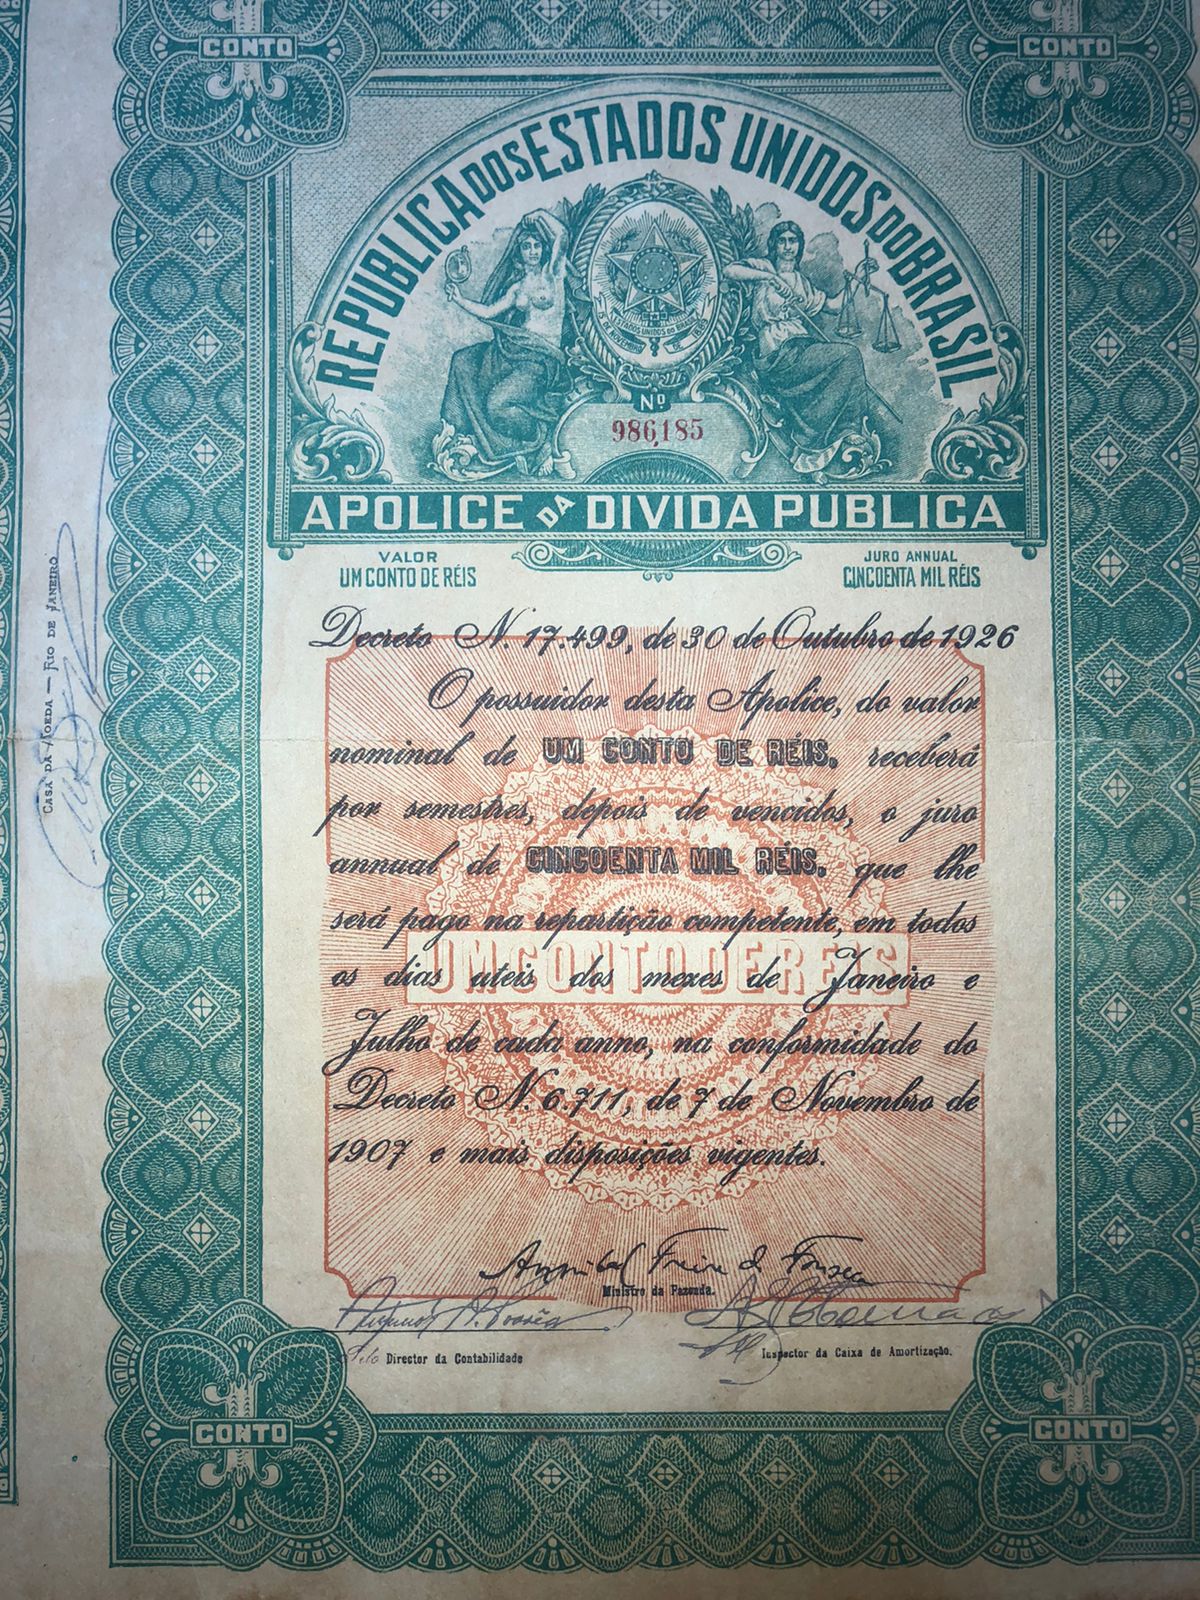 CONTO
CONTO
REPUBLICA DOS ESTADOS UNIDOS DO BRASIL
ESTADOS UNIDOS DO BRASIL
15 DE NOVEMBRO DE 1889
Nº
986,185
APOLICE DA DIVIDA PUBLICA
VALOR
UM CONTO DE RÉIS
JURO ANNUAL
CINCOENTA MIL RÉIS
Decreto N. 17.499, de 30 de Outubro de 1926
O possuidor desta Apolice, do valor
nominal de UM CONTO DE RÉIS, receberá
por semestres, depois de vencidos, o juro
annual de CINCOENTA MIL RÉIS, que lhe
será pago na repartição competente, em todos
os dias uteis dos mezes de Janeiro e
Julho de cada anno, na conformidade do
Decreto N. 6.711, de 7 de Novembro de
1907 e mais disposições vigentes.
UM CONTO DE RÉIS
Annibal Freire da Fonseca
Ministro da Fazenda.
Pelo Director da Contabilidade
Inspector da Caixa de Amortização.
1 CONTO
1 CONTO
CASA DA MOEDA — RIO DE JANEIRO